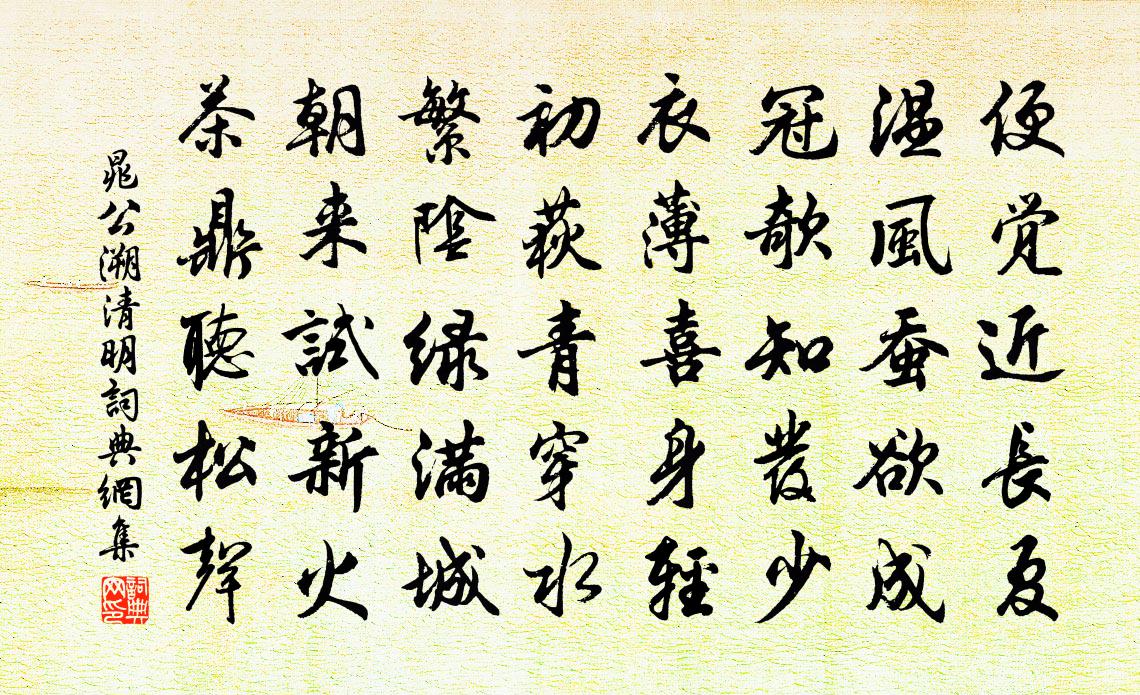 便觉近長夏
温風蚕欲成
冠欹知發少
衣薄喜身輕
初荻青穿水
繁陰緑满城
朝来試新火
茶鼎聽松聲
晁公溯清明詞典網集
詞典网印